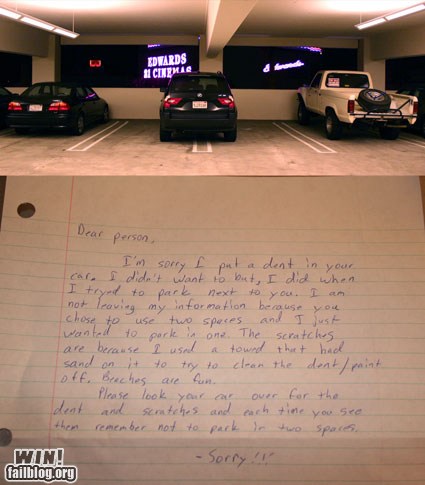 EDWARDS
21 CINEMAS
Dear person,
I'm sorry I put a dent in your
car. I didn't want to but, I did when
I tryed to park next to you. I am
not leaving my information because you
chose to use two spaces and I just
wanted to park in one. The scratches
are because I used a towel that had
sand on it to try to clean the dent/paint
off. Beaches are fun.
Please look your car over for the
dent and scratches and each time you see
them remember not to park in two spaces.
- Sorry!!!
WIN!
failblog.org